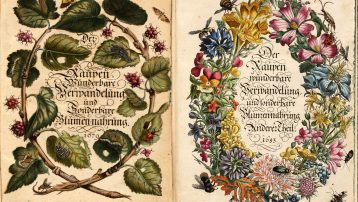 Der
Raupen
wunderbare
Verwandelung
und
sonderbare
Blumen-nahrung
1679
Der
Raupen
wunderbare
Verwandlung
und sonderbare
Blumennahrung
Anderer Theil.
1683